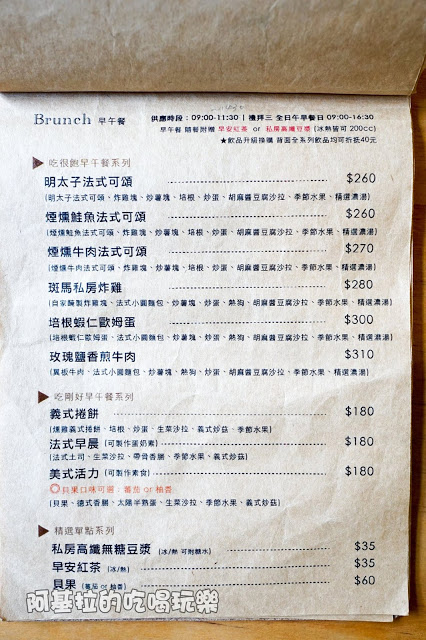 Brunch 早午餐
供應時段：09:00-11:30 | 禮拜三 全日午早餐日 09:00-16:30
早午餐 隨餐附贈 早安紅茶 or 私房高纖豆漿 (冰熱皆可 200cc)
★飲品升級換購 背面全系列飲品均可折抵40元
吃很飽早午餐系列
明太子法式可頌 $260
(明太子法式可頌、炸雞塊、炒薯塊、培根、炒蛋、胡麻醬豆腐沙拉、季節水果、精選濃湯)
煙燻鮭魚法式可頌 $260
(煙燻鮭魚法式可頌、炸雞塊、炒薯塊、培根、炒蛋、胡麻醬豆腐沙拉、季節水果、精選濃湯)
煙燻牛肉法式可頌 $270
(煙燻牛肉法式可頌、炸雞塊、炒薯塊、培根、炒蛋、胡麻醬豆腐沙拉、季節水果、精選濃湯)
斑馬私房炸雞 $280
(自家醃製炸雞塊、法式小圓麵包、炒薯塊、炒蛋、熱狗、胡麻醬豆腐沙拉、季節水果、精選濃湯)
培根蝦仁歐姆蛋 $300
(培根蝦仁歐姆蛋、法式小圓麵包、炒薯塊、熱狗、胡麻醬豆腐沙拉、季節水果、精選濃湯)
玫瑰鹽香煎牛肉 $310
(翼板牛肉、法式小圓麵包、炒薯塊、熱狗、炒蛋、胡麻醬豆腐沙拉、季節水果、精選濃湯)
吃剛好早午餐系列
義式捲餅 $180
(燻雞義式捲餅、培根、炒蛋、生菜沙拉、義式炒菇、季節水果)
法式早晨 (可製作蛋奶素) $180
(法式土司、生菜沙拉、帶骨香腸、季節水果、義式炒菇)
美式活力 (可製作素食) $180
◎貝果口味可選：蕃茄 or 柚香
(貝果、德式香腸、太陽半熟蛋、生菜沙拉、季節水果、義式炒菇)
精選單點系列
私房高纖無糖豆漿 (冰/熱 可附糖水) $35
早安紅茶 (冰/熱) $35
貝果 (蕃茄 or 柚香) $60
阿基拉的吃喝玩樂